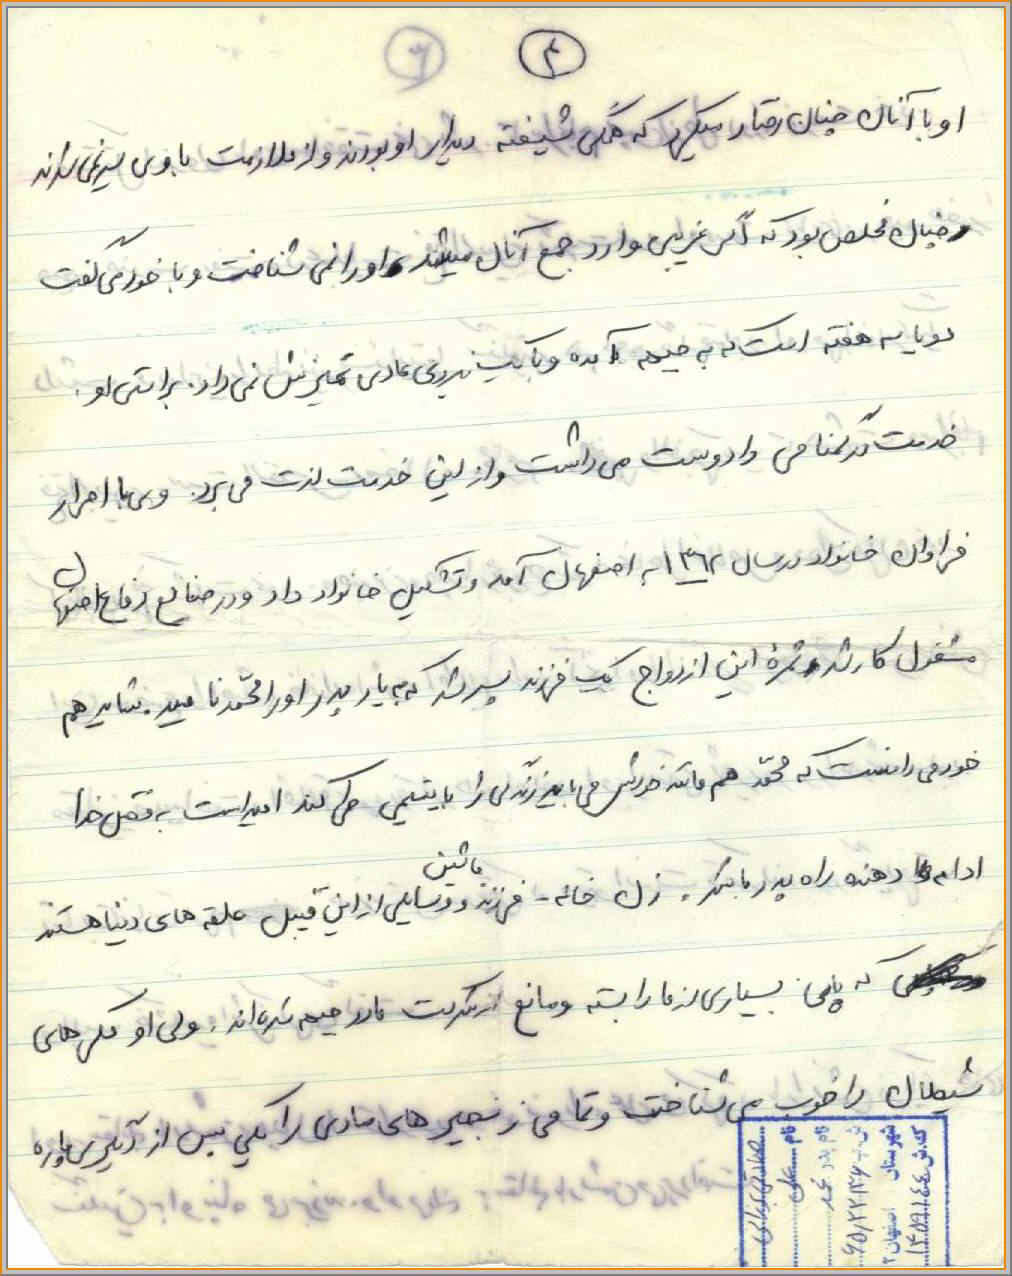 ۴
او با آنان چنان رفتار میکرد که همگی شیفته دیدار او بودند و از ملازمت با وی سیر نمی شدند
چنان مخلص بود که اگر غریبی وارد جمع آنان میشد او را نمی شناخت و با خود می گفت
دو یا سه هفته است که به جبهه آمده و با یک نیروی عادی تمیزش نمی داد. براستی او
خدمت در گمنامی را دوست می داشت و از این خدمت لذت می برد. وی با اصرار
فراوان خانواده در سال ۱۳۶۲ به اصفهان آمد و تشکیل خانواده داد و در صنایع دفاع اصفهان
مشغول کار شد ثمرهٔ این ازدواج یک فرزند پسر شد که به یاد پدر او را محمّد نامید. شاید هم
خود می دانست که محمّد هم مانند خودش می باید زندگی را با یتیمی طی کند امید است به فضل خدا
ادامه دهنده راه پدر باشد. زن خانه - فرزند ماشین و وسایلی از این قبیل علقه های دنیا هستند
که پای بسیاری از ما را بسته و مانع از شرکت ما در جبهه شده اند. ولی او مکرهای
شیطان را خوب می شناخت و تمامی زنجیر های مادی را یکی پس از دیگری پاره
ک.ش ۱۴۵۹۱۴۴
شهرستان اصفهان ۲
ش.پ ۶۵/۲۲۱۳۶
نام پدر محمد
نام علی